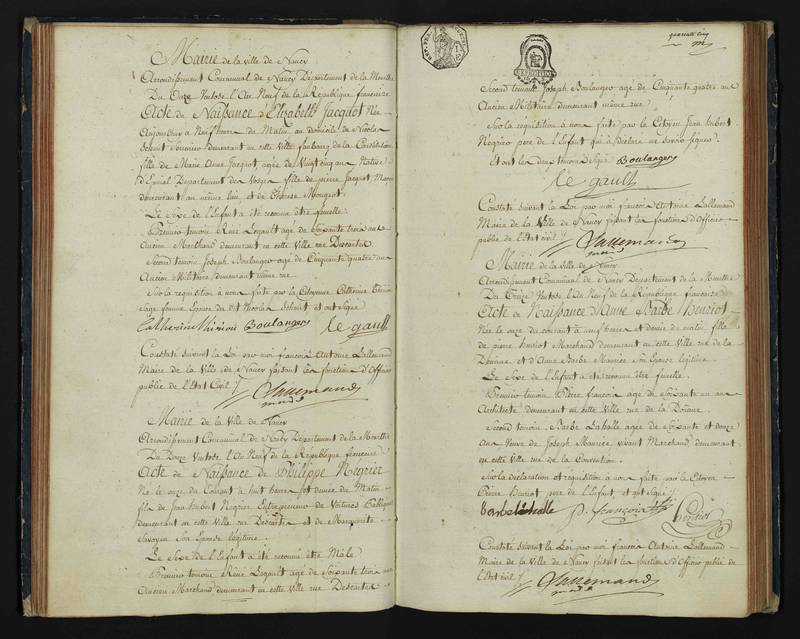 Mairie de la ville de Nancy
Arrondissement Communal de Nancy Département de la Meurthe
Du Onze Ventose l'An Neuf de la République française
Acte de Naissance d'Elizabeth Jacquot Née
Aujourd'hui à Neuf heures du Matin au domicile de Nicolas
demeurant en cette Ville faubourg de la Constitution
fille de Marie Anne Jacquot agée de Vingt cinq ans Native
d'Epinal Département des Vosges fille de pierre Jacquot
demeurant au même lieu et de Therese Mougeot
Le Sexe de l'Enfant a été reconnu être femelle
Premier temoin René Legault agé de Soixante trois ans
Ancien Marchand demeurant en cette Ville rue Descartes
Second temoin Joseph Boulanger agé de Cinquante quatre ans
Ancien Militaire demeurant même rue
Sur la requisition à nous faite par la Citoyenne Catherine
Sage femme Epouse du dit Nicolas et ont Signé
Catherine Boulangers le gault
Constaté suivant la Loi par moi françois Antoine Lallemand
Maire de la Ville de Nancy faisant les fonctions d'Officier
public de l'Etat Civil
Lallemand
Mairie de la Ville de Nancy
Arrondissement Communal de Nancy Département de la Meurthe
Du Douze Ventose l'An Neuf de la République française
Acte de Naissance de Philippe Négrier
Né le onze du Courant à huit heures et demie du Matin
fils de Jean hubert Négrier Entrepreneur de Voitures Publiques
demeurant en cette Ville rue Descartes et de Marguerite
Savoyen Son Epouse légitime
Le Sexe de l'Enfant a été reconnu être Mâle
Premier temoin René Legault agé de Soixante trois ans
Ancien Marchand demeurant en cette Ville rue Descartes
quarante cinq
Second temoin Joseph Boulanger agé de Cinquante quatre ans
Ancien Militaire demeurant même rue
Sur la réquisition à nous faite par le Citoyen Jean hubert
Négrier pere de l'Enfant qui a déclaré ne savoir signer
Et ont les deux temoins Signé Boulangers
le gault
Constaté suivant la Loi par moi françois Antoine Lallemand
Maire de la Ville de Nancy faisant les fonctions d'Officier
public de l'Etat civil
Lallemand
Mairie de la Ville de Nancy
Arrondissement Communal de Nancy Département de la Meurthe
Du Douze Ventose l'An Neuf de la République française
Acte de Naissance d'Anne Barbe Henriot
Née le onze du courant à neuf heures et demie du matin, fille
de pierre Henriot Marchand demeurant en cette Ville rue de la
Douane et d'Anne Barbe Son Epouse légitime
Le Sexe de l'Enfant a été reconnu être femelle
Premier temoin Pierre françois agé de Soixante un an
Architecte demeurant en cette Ville rue de la Douane
Second temoin Barbe Laballe agée de Soixante et douze
ans Veuve de Joseph vivant Marchand demeurant
en cette Ville rue de la Convention
Sur la déclaration et réquisition à nous faite par le Citoyen
Pierre Henriot pere de l'Enfant, et ont Signé
P. françois henriot
Constaté suivant la Loi par moi françois Antoine Lallemand
Maire de la Ville de Nancy faisant les fonctions d'Officier public de
l'Etat civil
Lallemand